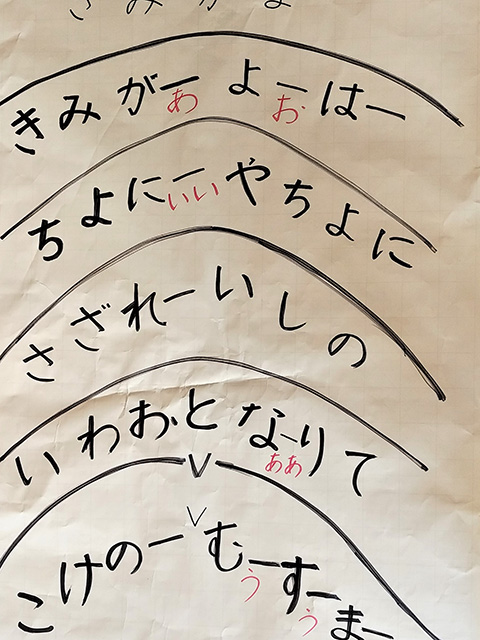 きみがよ
きみがーよーはー
あ お
ちよにーやちよに
いい
さざれーいしの
いわおとなーりて
ああ
V
V
こけのーむーすーまー
う う